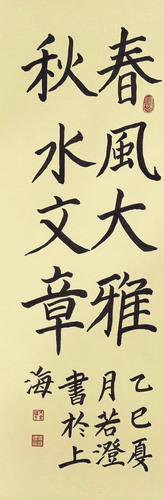 春風大雅
秋水文章
乙巳夏
月若澄
書於上
海